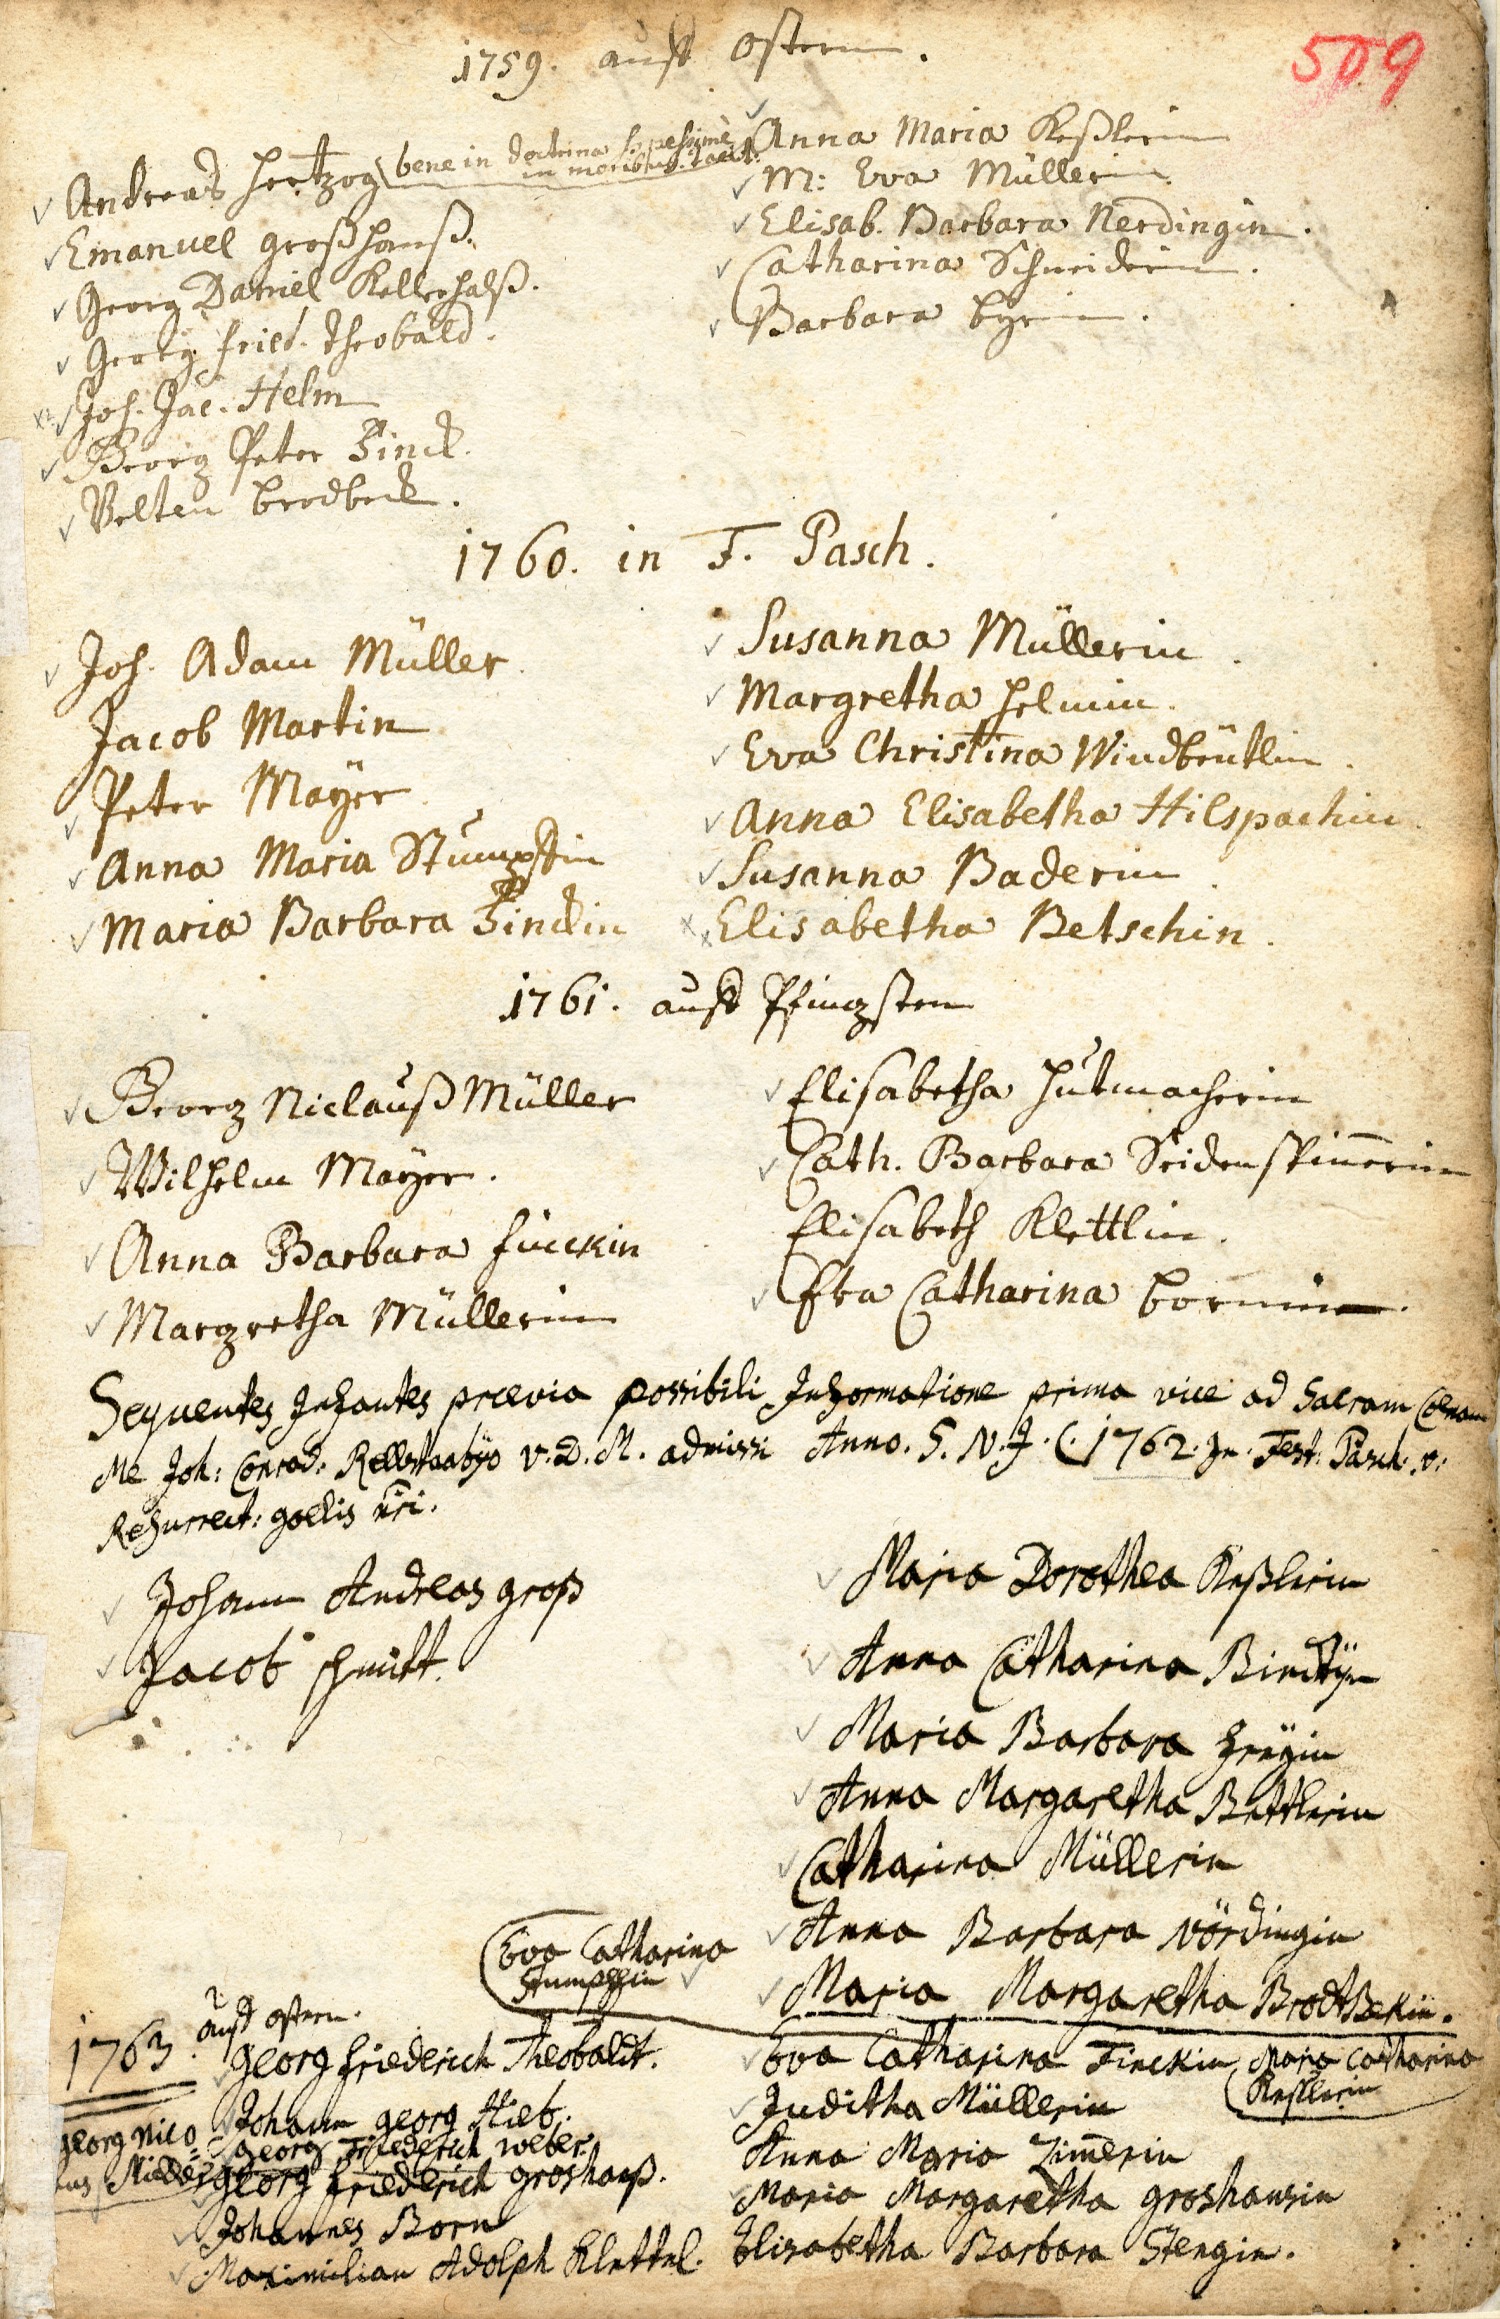 509
1759. auff Ostern.
Andreas Hertzog bene in doctrina sed pessime
in moribus
Emanuel Großhanß.
Georg Daniel Kellerhalß.
Georg Fried. Theobald.
Joh. Jac. Helm
Georg Peter Finck.
Velten Brodbeck.
Anna Maria Keßlerin
M: Eva Müllerin
Elisab. Barbara Nerdingin.
Catharina Schneiderin.
Barbara
1760. in F. Pasch.
Joh. Adam Müller
Jacob Martin
Peter Mayer
Anna Maria Stumpffin
Maria Barbara Finckin
Susanna Müllerin.
Margretha Helmin.
Eva Christina Windbeütlin.
Anna Elisabetha Hilspachin.
Susanna Baderin.
Elisabetha Betschin.
1761. auff Pfingsten
Georg Niclauß Müller
Wilhelm Mayer.
Anna Barbara Finckin
Margretha Müllerin
Elisabetha Hutmacherin
Cath. Barbara Seidenspin̄erin
Elisabeth Klettlin.
Eva Catharina Bornin.
Sequentes Infantes prævia possibili Informatione prima vice ad Sacram Cœnam
Me Joh: Conrad: V. D. M. admissi Anno. S. N. J. C. 1762. In Fest: Pasch. v:
Resurrect:
Johann Andreas groß
Jacob schmitt.
Maria Dorothea Keßlerin
Anna Catharina
Maria Barbara freyin
Anna Margaretha Bettlerin
Catharina Müllerin
Anna Barbara Nördingin
Maria Margaretha BrodtBekin.
Eva Catharina
Stumpffin
1763. auff ostern.
Georg friederich Theobaldt.
Johann georg Hieb.
georg Friederich weber.
georg Nico
laus Müller
georg friederich groshanß.
Johannes Born
Maximilian Adolph Klettel.
Eva Catharina Finckin
Maria Catharina
Keßlerin
Juditha Müllerin
Anna Maria Zim̄erin
Maria Margaretha groshansin
Elisabetha Barbara Stengin.